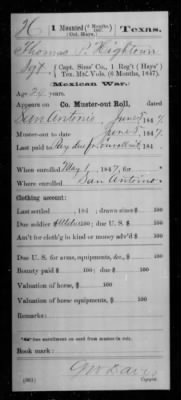 H | 1 Mounted (6 Months, 1847.) | Texas.
(Col. Hays.)
Thomas P. Hightower
Sgt, Capt. Sims' Co., 1 Reg't (Hays')
Tex. Mt'd Vols. (6 Months, 1847).
Mexican War.
Age 24 years.
Appears on Co. Muster-out Roll, dated
San Antonio June 184
Muster-out to date June 8, 1847.
Last paid to 184 .
When enrolled May 1, 1847,
Where enrolled San Antonio
Clothing account:
Last settled , 184 ; drawn since $ 100
Due soldier $ 100; due U. S. $ 100
Am't for cloth'g in kind or money adv'd $ 100
Due U. S. for arms, equipments, &c., $ 100
Bounty paid $ 100; due $ 100
Valuation of horse, $ 100
Valuation of horse equipments, $ 100
Remarks:
*See enrollment on card from muster-in roll.
Book mark:
(361)
Copyist.